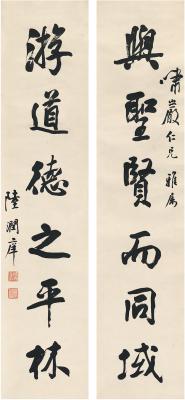 與聖賢而同域
嘯巖仁兄雅屬
游道德之平林
陸潤庠